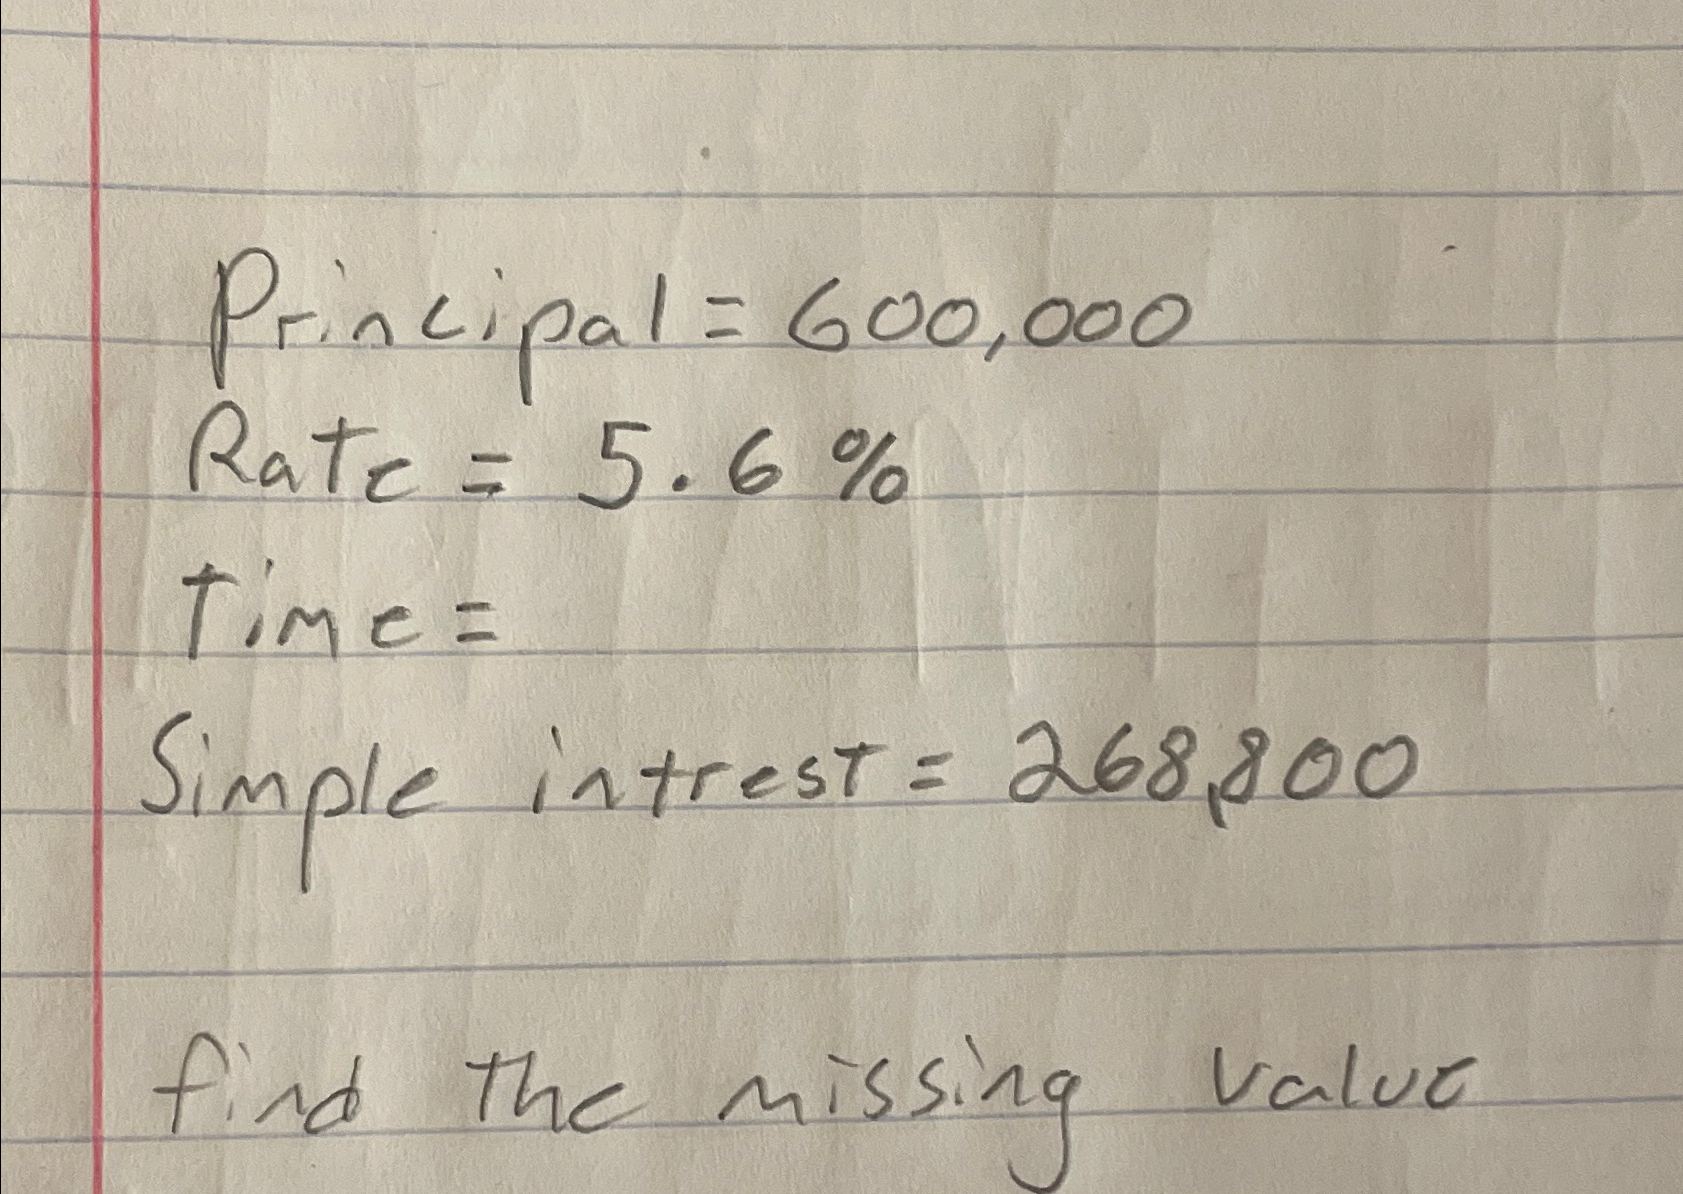 Principal = 600,000
Rate = 5.6 %
Time =
Simple intrest = 268,800
find the missing value